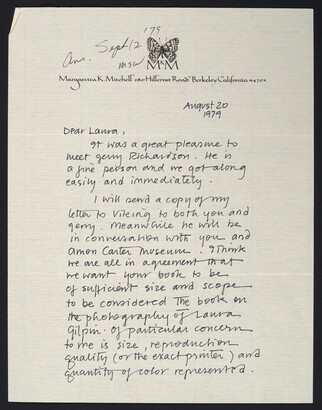 '79
Ans. Sept 12
msw
M M
Margaretta K. Mitchell Hillcrest Road Berkeley California 94705
August 20
1979
Dear Laura,
It was a great pleasure to
meet Gerry Richardson. He is
a fine person and we got along
easily and immediately.
I will send a copy of my
letter to Viking to both you and
Gerry. Meanwhile he will be
in conversation with you and
Amon Carter Museum. I think
we are all in agreement that
we want your book to be
of sufficient size and scope
to be considered The book on
the photography of Laura
Gilpin. Of particular concern
to me is size, reproduction
quality (or the exact printer) and
quantity of color represented.